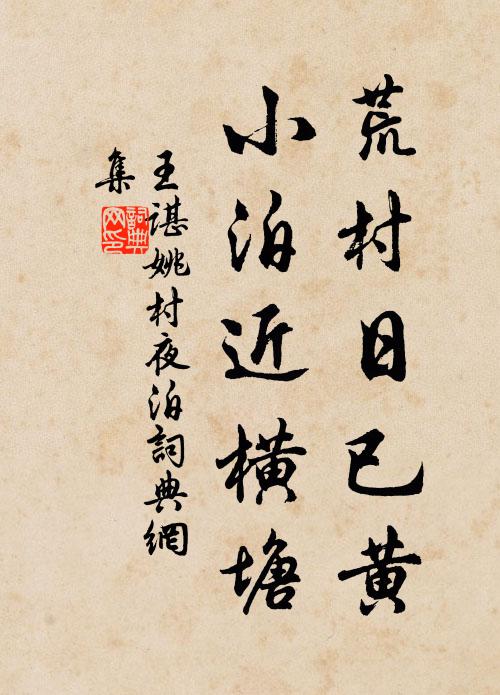 荒村日已黄
小泊近橫塘
王諶姚村夜泊詞典網
集
詞典
网印